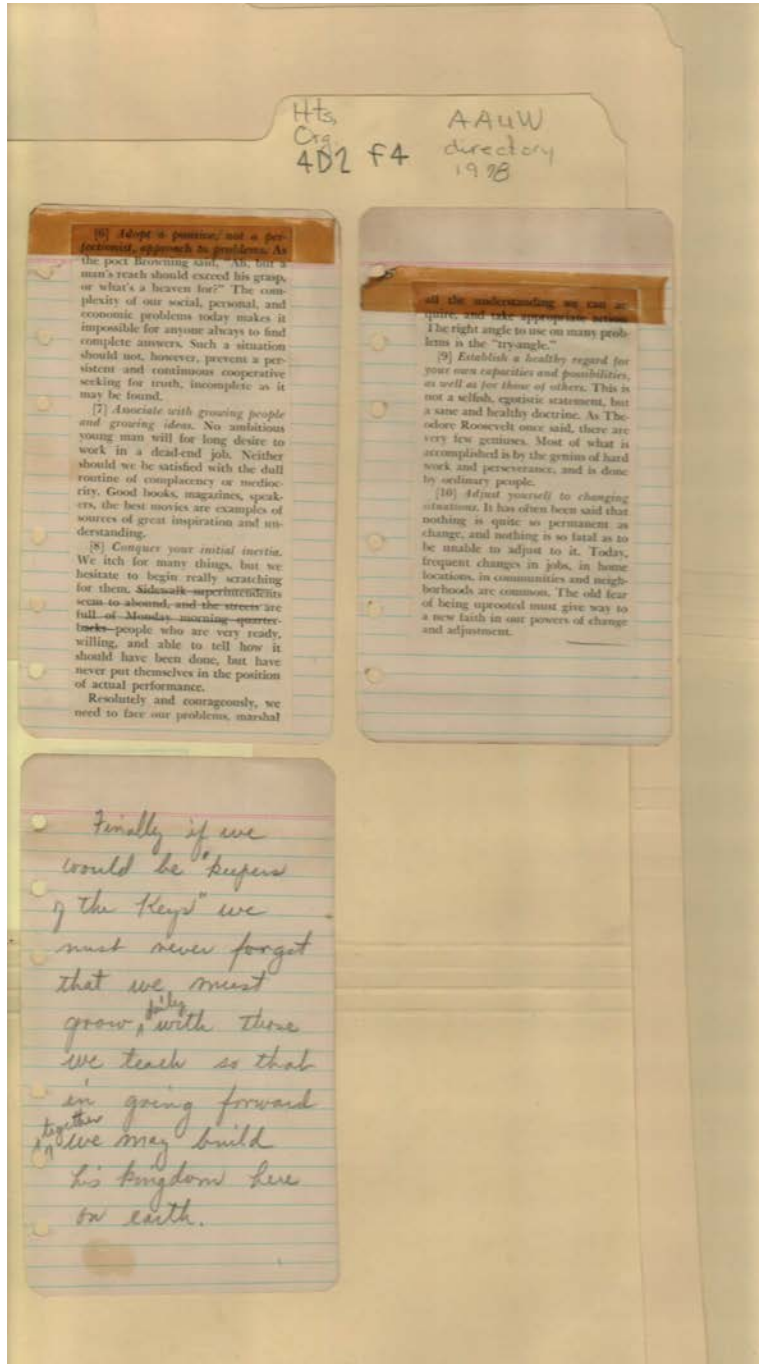 Hts,
Org
4D2 F4
AAUW
directory
1978
[6] Adopt a positive, not a per-
fectionist, approach to problems. As
the poet Browning said, "Ah, but a
man's reach should exceed his grasp,
or what's a heaven for?" The com-
plexity of our social, personal, and
economic problems today makes it
impossible for anyone always to find
complete answers. Such a situation
should not, however, prevent a per-
sistent and continuous cooperative
seeking for truth, incomplete as it
may be found.
[7] Associate with growing people
and growing ideas. No ambitious
young man will for long desire to
work in a dead-end job. Neither
should we be satisfied with the dull
routine of complacency or medioc-
rity. Good books, magazines, speak-
ers, the best movies are examples of
sources of great inspiration and un-
derstanding.
[8] Conquer your initial inertia.
We itch for many things, but we
hesitate to begin really scratching
for them. Sidewalk superintendents
seem to abound, and the streets are
full of Monday morning quarter-
backs people who are very ready,
willing, and able to tell how it
should have been done, but have
never put themselves in the position
of actual performance.
Resolutely and courageously, we
need to face our problems, marshal
all the understanding we can ac-
quire, and take appropriate action.
The right angle to use on many prob-
lems is the "try-angle."
[9] Establish a healthy regard for
your own capacities and possibilities,
as well as for those of others. This is
not a selfish, egotistic statement, but
a sane and healthy doctrine. As The-
odore Roosevelt once said, there are
very few geniuses. Most of what is
accomplished is by the genius of hard
work and perseverance, and is done
by ordinary people.
[10] Adjust yourself to changing
situations. It has often been said that
nothing is quite so permanent as
change, and nothing is so fatal as to
be unable to adjust to it. Today,
frequent changes in jobs, in home
locations, in communities and neigh-
borhoods are common. The old fear
of being uprooted must give way to
a new faith in our powers of change
and adjustment.
Finally if we
would be "keepers
of the Keys" we
must never forget
that we must
daily
grow with those
we teach so that
in going forward
together
we may build
his kingdom here
on earth.